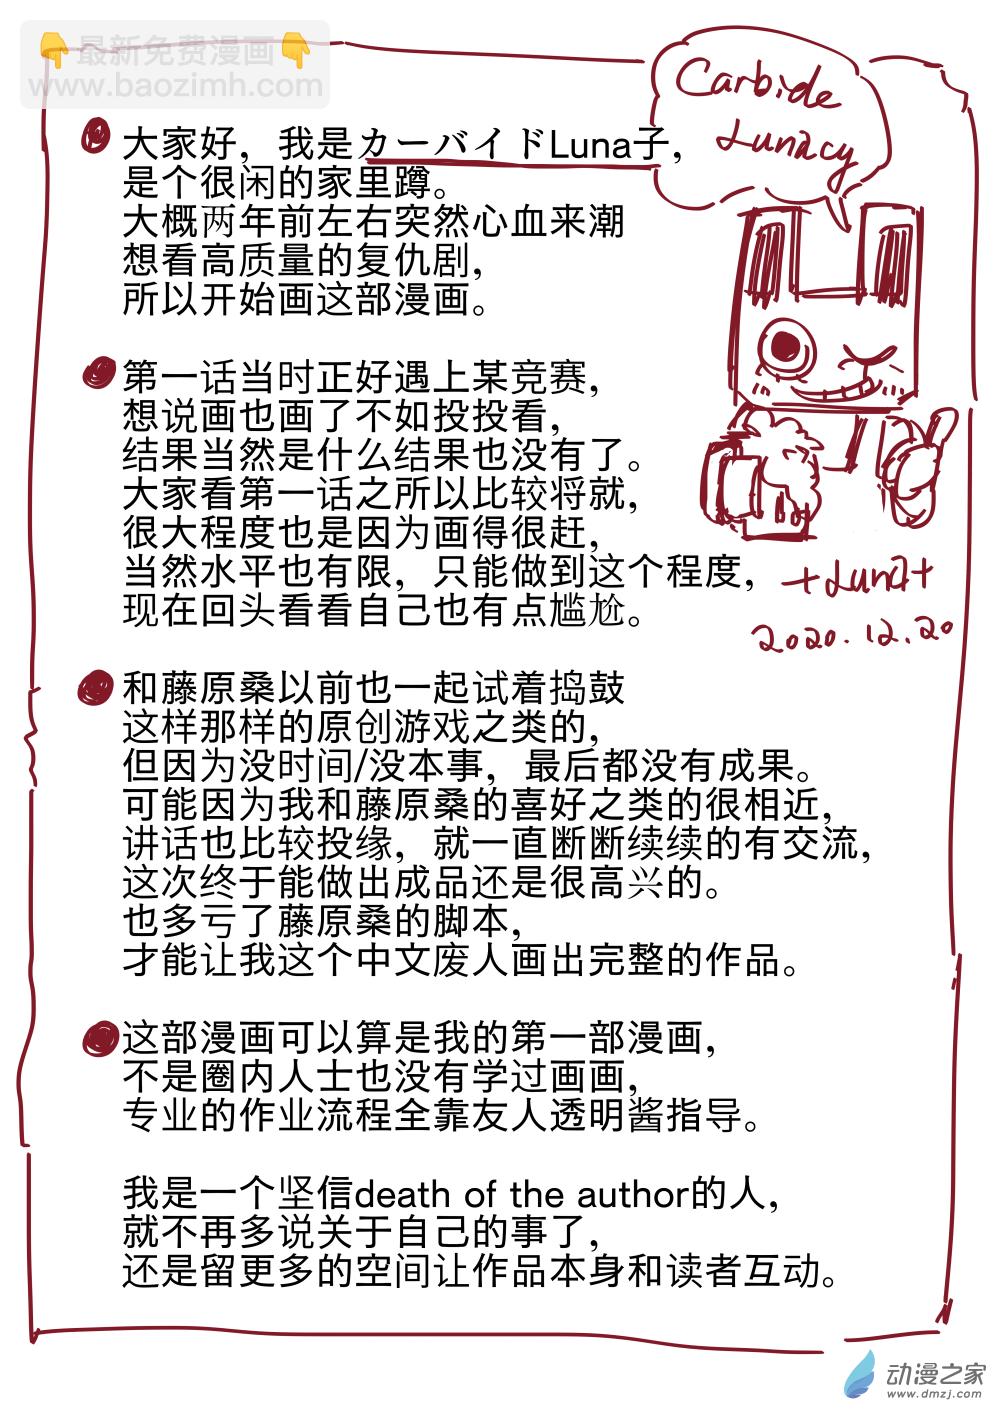 👇最新免费漫画👇
www.baozimh.com
Carbide
Lunacy
大家好，我是カーバイドLuna子，
是个很闲的家里蹲。
大概两年前左右突然心血来潮
想看高质量的复仇剧，
所以开始画这部漫画。
第一话当时正好遇上某竞赛，
想说画也画了不如投投看，
结果当然是什么结果也没有了。
大家看第一话之所以比较将就，
很大程度也是因为画得很赶，
当然水平也有限，只能做到这个程度，
现在回头看看自己也有点尴尬。
+Luna+
2020.12.20
和藤原桑以前也一起试着捣鼓
这样那样的原创游戏之类的，
但因为没时间/没本事，最后都没有成果。
可能因为我和藤原桑的喜好之类的很相近，
讲话也比较投缘，就一直断断续续的有交流，
这次终于能做出成品还是很高兴的。
也多亏了藤原桑的脚本，
才能让我这个中文废人画出完整的作品。
这部漫画可以算是我的第一部漫画，
不是圈内人士也没有学过画画，
专业的作业流程全靠友人透明酱指导。
我是一个坚信death of the author的人，
就不再多说关于自己的事了，
还是留更多的空间让作品本身和读者互动。
动漫之家
www.dmzj.com